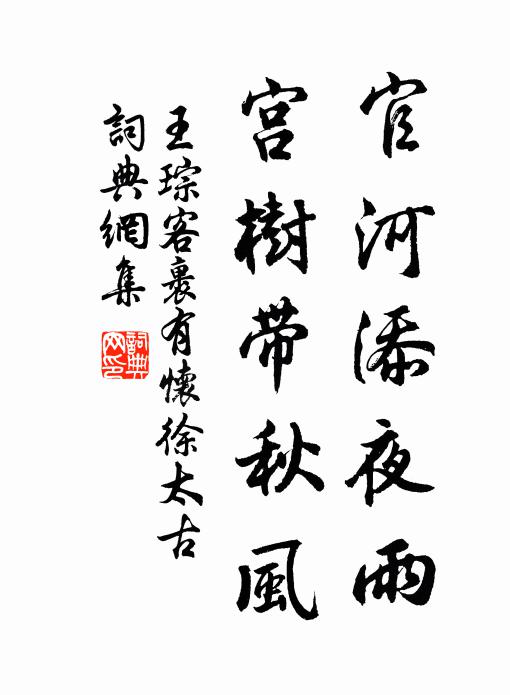 官河添夜雨
宫樹带秋風
王琮客裏有懷徐太古
詞典網集
詞典網印